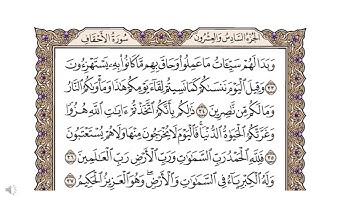 الجُزْءُ السَّادِسُ وَالعِشْرُونَ سُورَةُ الأَحْقَافِ
وَبَدَا لَهُمْ سَيِّـَٔاتُ مَا عَمِلُوا۟ وَحَاقَ بِهِم مَّا كَانُوا۟ بِهِۦ يَسْتَهْزِءُونَ
٣٣ وَقِيلَ ٱلْيَوْمَ نَنسَىٰكُمْ كَمَا نَسِيتُمْ لِقَآءَ يَوْمِكُمْ هَٰذَا وَمَأْوَىٰكُمُ ٱلنَّارُ
وَمَا لَكُم مِّن نَّٰصِرِينَ ٣٤ ذَٰلِكُم بِأَنَّكُمُ ٱتَّخَذْتُمْ ءَايَٰتِ ٱللَّهِ هُزُوًا
وَغَرَّتْكُمُ ٱلْحَيَوٰةُ ٱلدُّنْيَا ۚ فَٱلْيَوْمَ لَا يُخْرَجُونَ مِنْهَا وَلَا هُمْ يُسْتَعْتَبُونَ
٣٥ فَلِلَّهِ ٱلْحَمْدُ رَبِّ ٱلسَّمَٰوَٰتِ وَرَبِّ ٱلْأَرْضِ رَبِّ ٱلْعَٰلَمِينَ ٣٦
وَلَهُ ٱلْكِبْرِيَآءُ فِى ٱلسَّمَٰوَٰتِ وَٱلْأَرْضِ ۖ وَهُوَ ٱلْعَزِيزُ ٱلْحَكِيمُ ٣٧